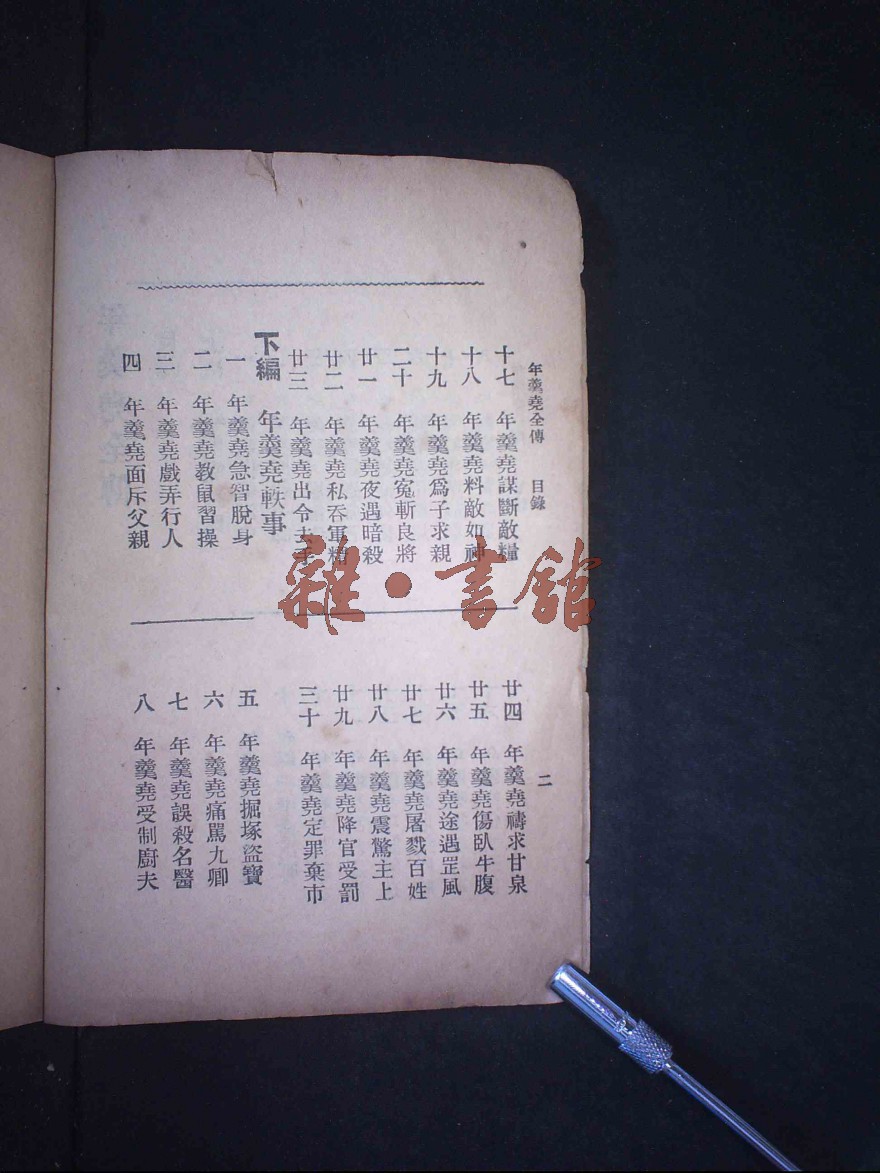 年羹堯全傳　目錄
二
十七　年羹堯謀斷敵糧
十八　年羹堯料敵如神
十九　年羹堯爲子求親
二十　年羹堯冤斬良將
廿一　年羹堯夜遇暗殺
廿二　年羹堯私吞軍糈
廿三　年羹堯出令去手
廿四　年羹堯禱求甘泉
廿五　年羹堯傷臥牛腹
廿六　年羹堯途遇罡風
廿七　年羹堯屠戮百姓
廿八　年羹堯震驚主上
廿九　年羹堯降官受罰
三十　年羹堯定罪棄市
下編　年羹堯軼事
一　年羹堯急智脫身
二　年羹堯教鼠習操
三　年羹堯戲弄行人
四　年羹堯面斥父親
五　年羹堯掘塚盜寶
六　年羹堯痛罵九卿
七　年羹堯誤殺名醫
八　年羹堯受制廚夫
雜·書館